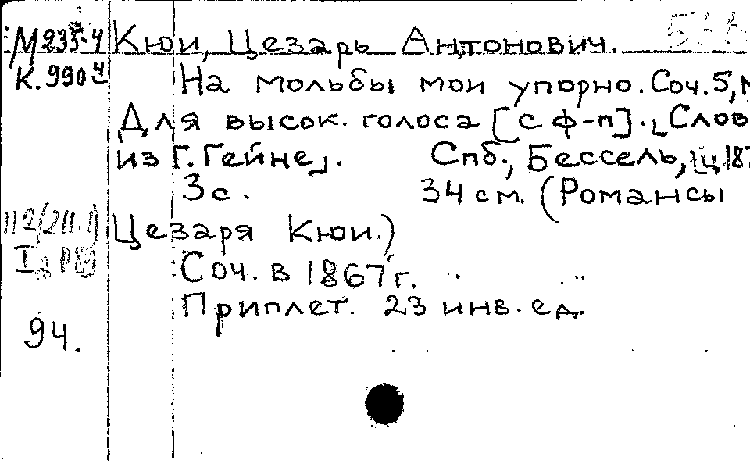 М235-4 Кюи, Цезарь Антонович.
К.9904 На мольбы мои упорно. Соч.5,
Для высок. голоса [с ф-п]. [Слов
из Г. Гейне]. Спб., Бессель, ц. 187
3 с. 34 см. (Романсы
Цезаря Кюи.)
Соч. в 1867 г.
Приплет. 23 инв. ед.
94.